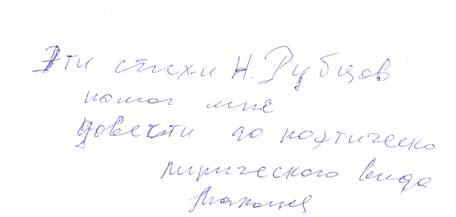 Эти стихи Н. Рубцов
помог мне
довести до поэтическо
лирического вида